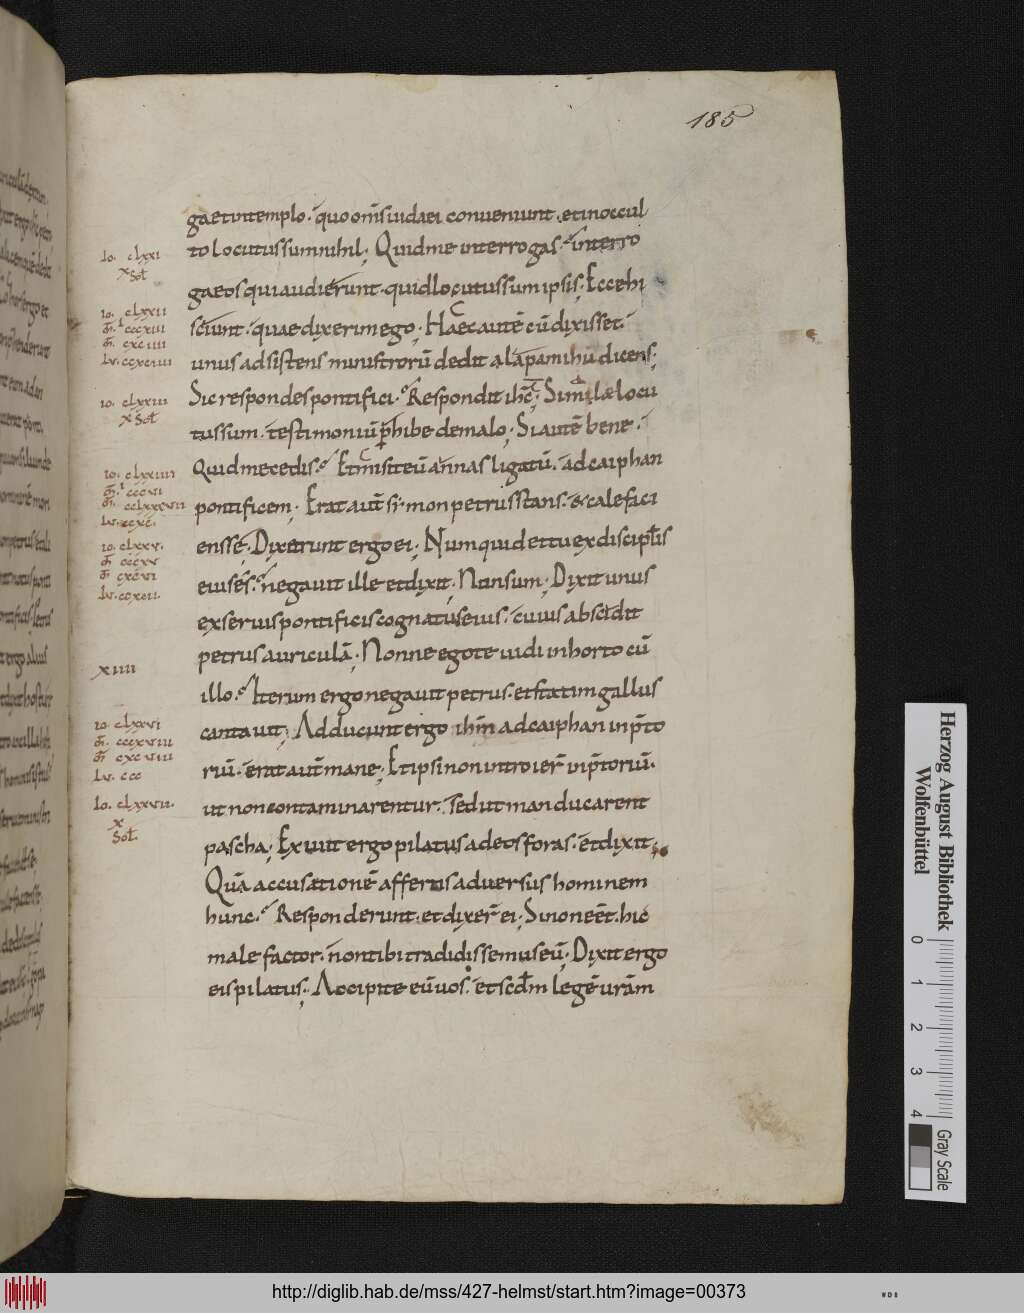 185
gaetintemplo· quo om̅s iudaei conueniunt· etinoccul
to locutussumnihil; Quidme interrogas· interro
gaeos quiaudierunt· quidlocutussum ipsis; Ecce hi
sciunt· quae dixerim ego; Haec autē cū dixisset·
unus adsistens ministrorū dedit alapam ihū dicens;
Sic respondes pontifici· Respondit ihc̅; Si male locu
tussum· testimoniū phibe de malo; Si autē bene·
Quid me cedis· Et misit eū annas ligatū· ad caiphan
pontificem; Erat aut̄ simon petrus stans· & calefici
ens se; Dixerunt ergo ei; Numquid et tu ex discipl̄is
eius es· negauit ille et dixit; Non sum; Dixit unus
ex seruis pontificis cognatus eius· cuius abscidit
petrus auriculā; Nonne ego te uidi in horto cū
illo· Iterum ergo negauit petrus· et statim gallus
cantauit; Adducunt ergo ihm̅ ad caiphan in p̄to
riū· erat aut̄ mane; Et ipsi non introier̄ in p̄toriū·
ut non contaminarentur· sed ut manducarent
pascha; Exiuit ergo pilatus ad eos foras· et dixit;
Quā accusationē affertis aduersus hominem
hunc· Responderunt· et dixer̄ ei; Si non eēt hic
male factor· non tibi tradidissemus eū; Dixit ergo
eis pilatus; Accipite eū uos· et scd̄m legē urām
Io. clxxi
x Sol̄
Io. clxxii
m̄. cccxiii
m̄. cxciiii
Lu. ccxciiii
Io. clxxiii
x Sol̄
Io. clxxiiii
m̄. cccvi
Io. clxxv.
m̄ cccxv
m̄ cxcvi
Lu. ccxcii.
xiiii
Io. clxxvi
m̄. cccxviii
m̄ cxcviii
Lu. ccc
Io. clxxvii.
x
Sol̄.
Herzog August Bibliothek
Wolfenbüttel
0 1 2 3 4
Gray Scale
http://diglib.hab.de/mss/427-helmst/start.htm?image=00373